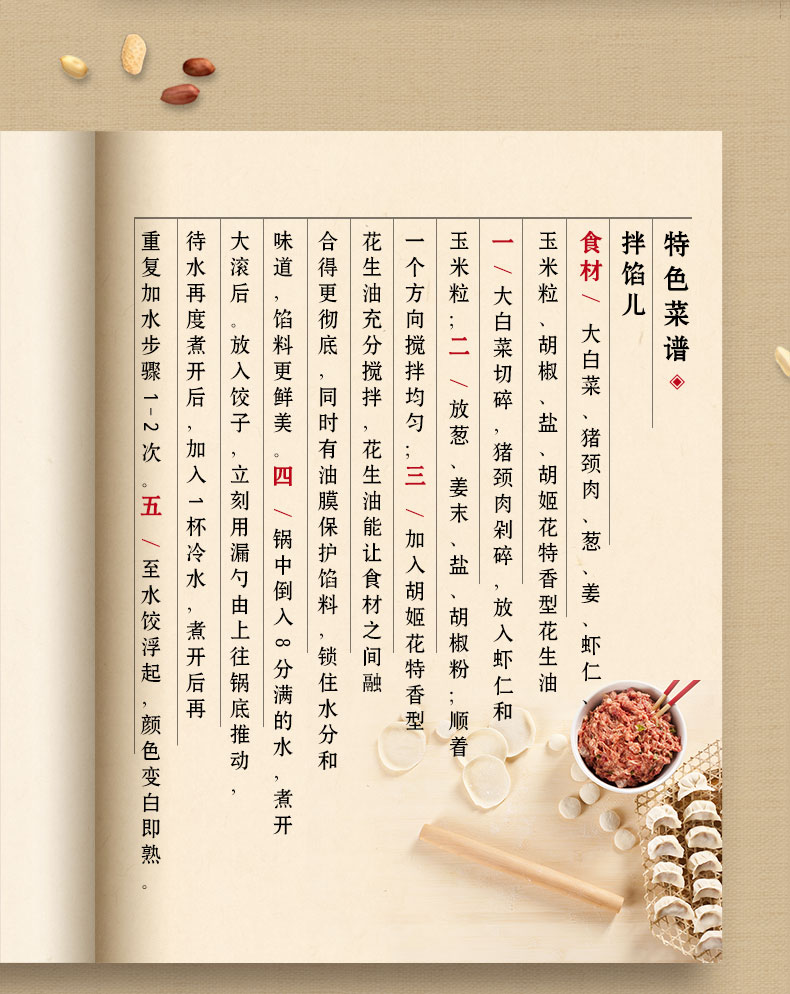 特色菜谱
拌馅儿
食材/大白菜、猪颈肉、葱、姜、虾仁、
玉米粒、胡椒、盐、胡姬花特香型花生油
一/大白菜切碎,猪颈肉剁碎,放入虾仁和
玉米粒;二/放葱、姜末、盐、胡椒粉;顺着
一个方向搅拌均匀;三/加入胡姬花特香型
花生油充分搅拌,花生油能让食材之间融
合得更彻底,同时有油膜保护馅料,锁住水分和
味道,馅料更鲜美。四/锅中倒入8分满的水,煮开
大滚后。放入饺子,立刻用漏勺由上往锅底推动,
待水再度煮开后,加入1杯冷水,煮开后再
重复加水步骤1-2次。五/至水饺浮起,颜色变白即熟。